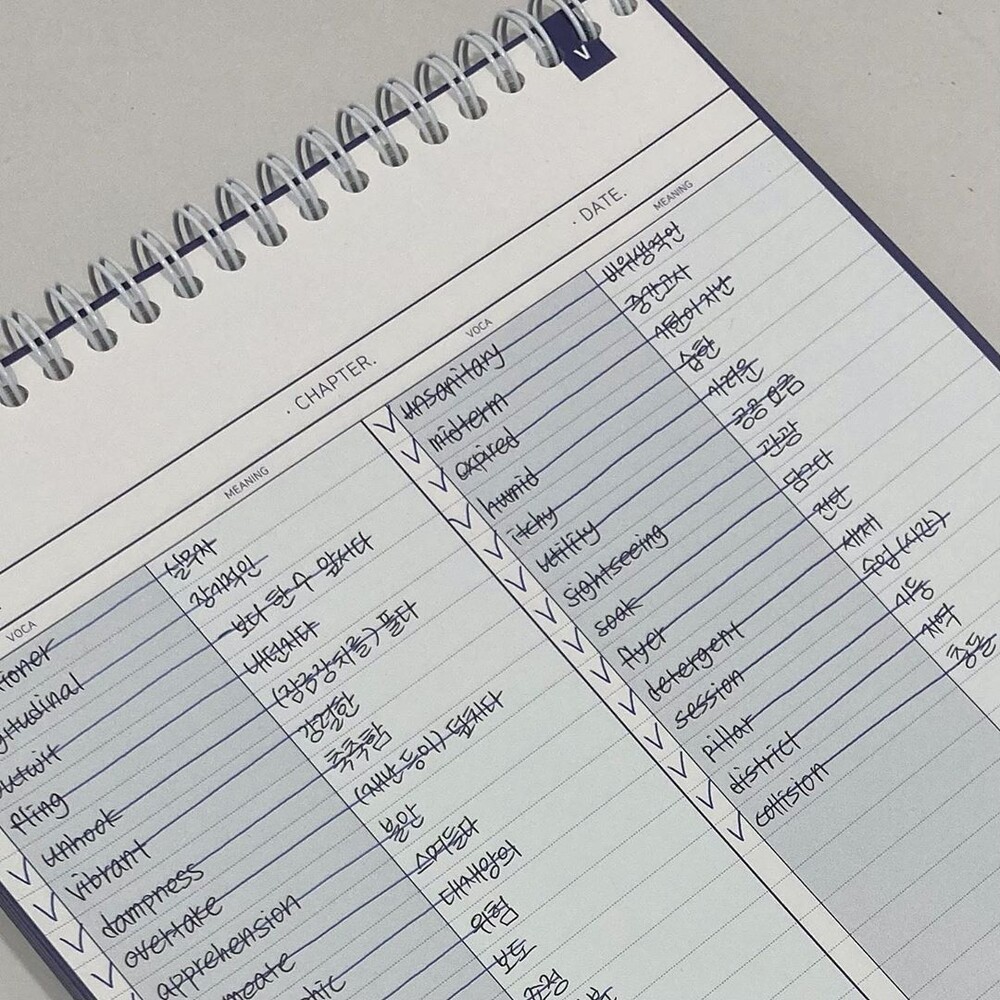 V
· DATE.
· CHAPTER.
VOCA MEANING
실무자
장기적인
outwit 보다 한 수 앞서다
fling 내던지다
unhook (잠금장치를) 풀다
vibrant 강렬한
dampness 축축함
overtake (재난 등이) 덮치다
apprehension 불안
스며들다
대서양의
위험
보도
VOCA MEANING
unsanitary 비위생적인
midterm 중간고사
expired 기한이 지난
humid 습한
itchy 가려운
utility 공공요금
sightseeing 관광
soak 담그다
flyer 전단
detergent 세제
session 수업(시간)
pillar 기둥
district 지역
collision 충돌